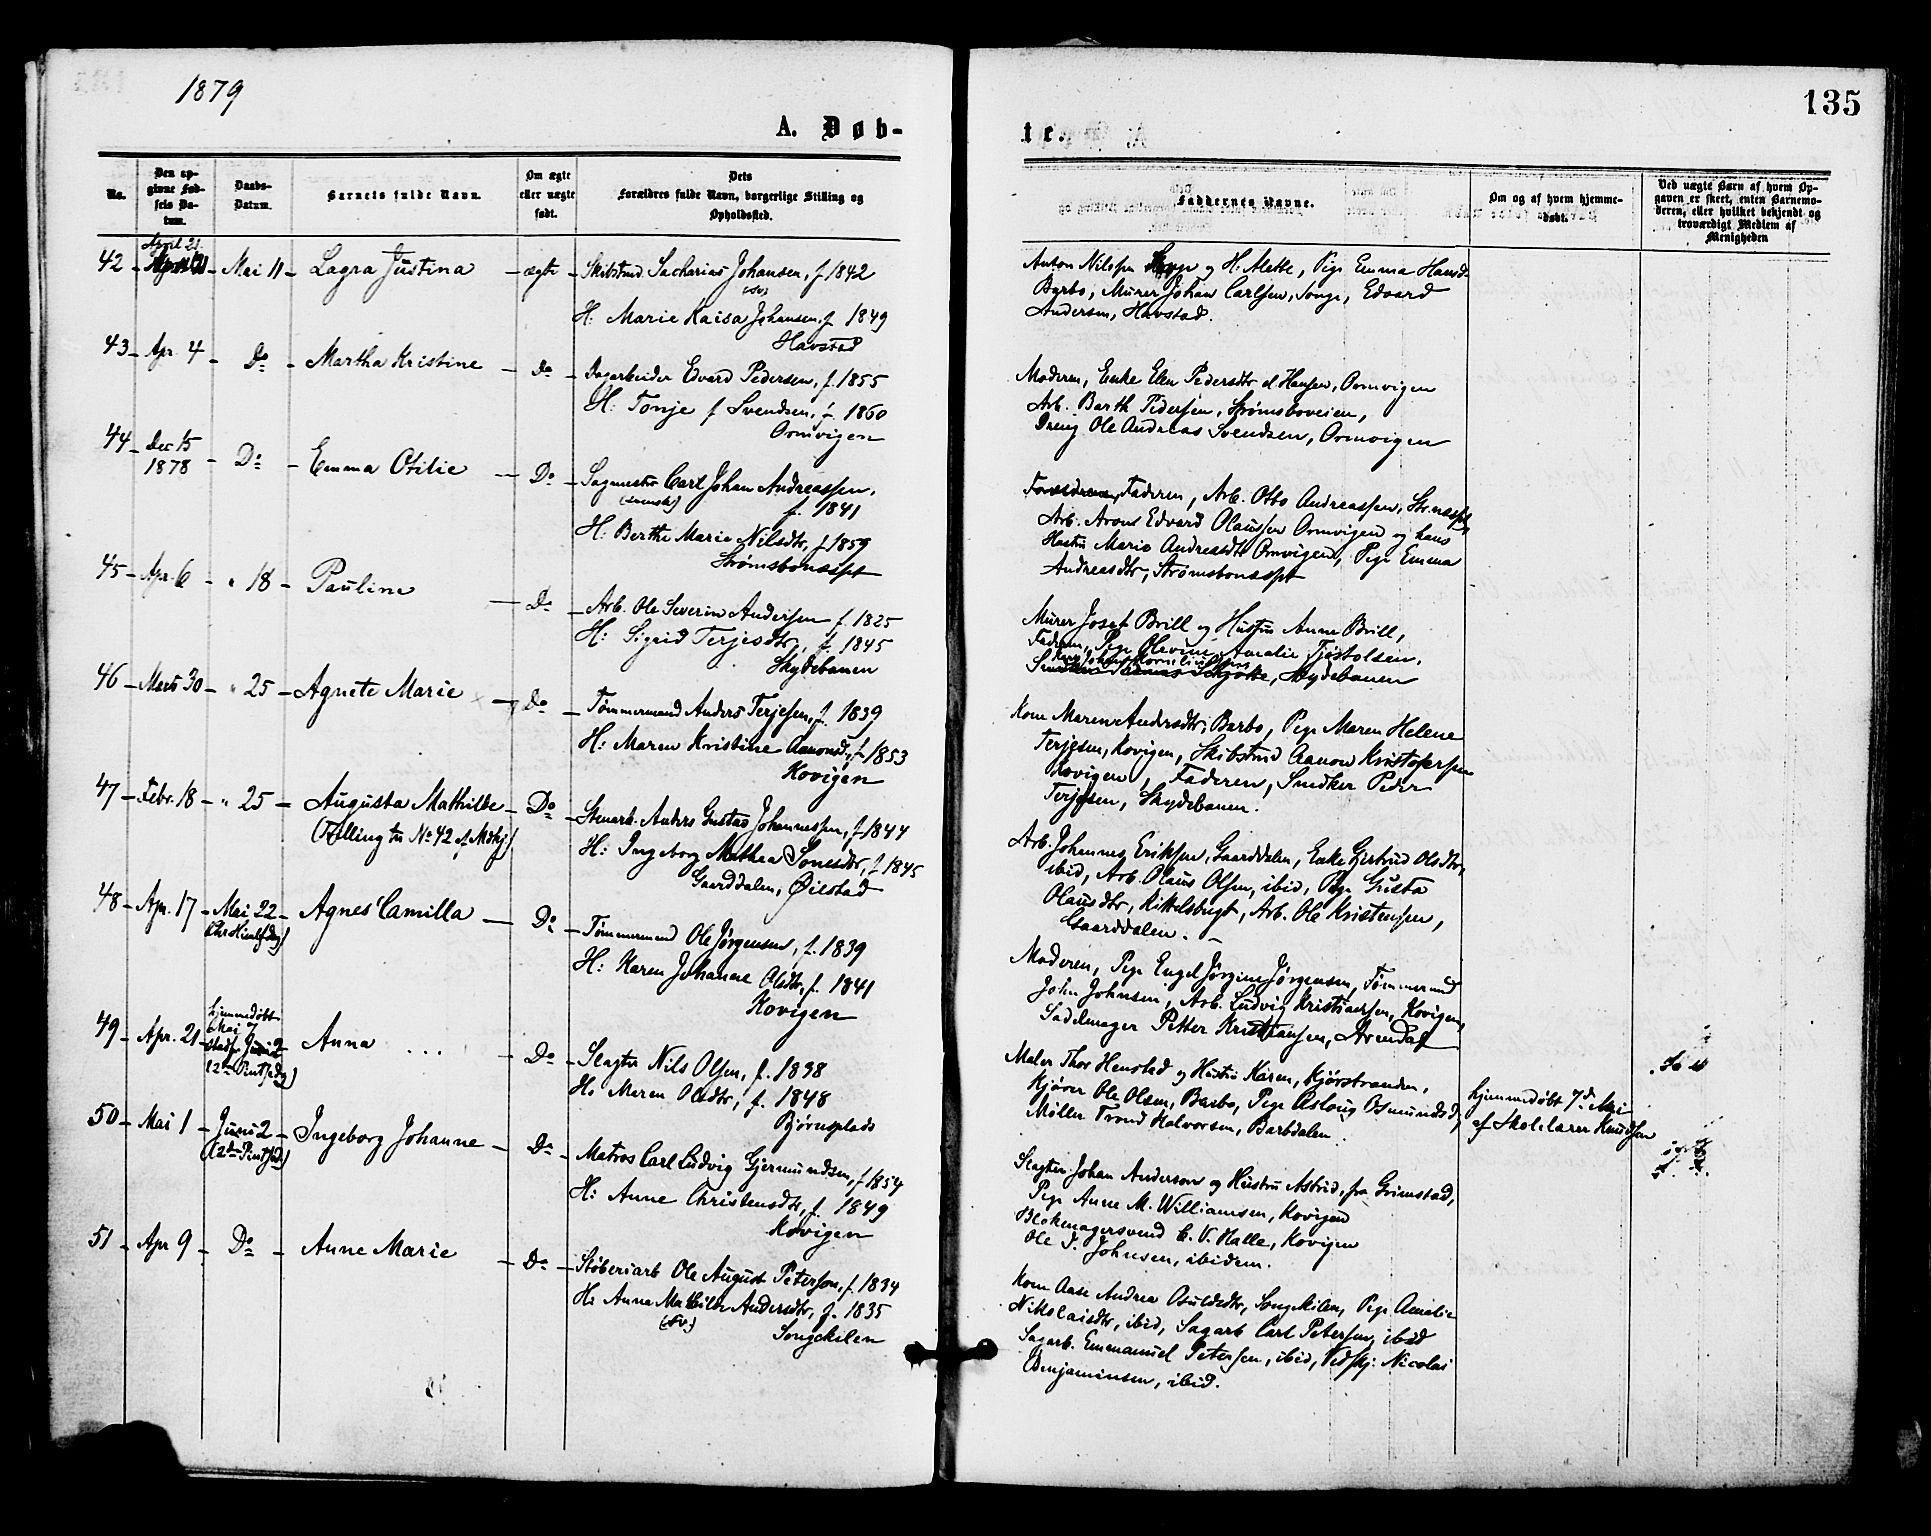 1879
135
A. Døb-
te.
No.
Den op-
givne Fød-
sels Da-
tum.
Daabs-
Datum.
Barnets fulde Navn.
Om ægte
eller uægte
født.
Dets
Forældres fulde Navn, borgerlige Stilling og
Opholdssted.
Faddernes Navne.
Om og af hvem hjemme-
døbt.
Ved uægte Børn af hvem Op-
gaven er skeet, enten Barnemo-
deren, eller hvilket bekjendt og
troværdigt Medlem af
Menigheden
April 21
42 – – Mai 11 – Lagra Justina – ægte – Skibstmd Sacharias Johansen, f 1842
(sv)
H: Marie Kaisa Johansen, f 1849
Havstad
Anton Nilsen og H. Mette, Pige Emma Hansd.
Barbo, Murer Johan Carlsen, Songe, Edvard
Andersen, Havstad.
43 – Apr. 4 – Do – Martha Kristine – Do – Dagarbeider Edvard Pedersen, f. 1855
H: Tonje f Svendsen, f. 1860
Ormvigen
Moderen, Enke Elen Pedersdtr el Hansen, Ormvigen
Arb. Barth Pedersen, Strømsboveien,
Dreng Ole Andreas Svendsen, Ormvigen
44 – Dec 15
1878 – Do – Emma Otilie – Do – Sagmester Carl Johan Andreassen,
(svensk) f. 1841
H: Berthe Marie Nilsdtr, f 1859
Strømsbonæsset
Faderen, Arb. Otto Andreassen, Str.næsset,
Arb. Arons Edvard Olaussen Ormvigen og hans
Hustru Marie Andreasdtr Ormvigen, Pige Emma
Andreasdtr, Strømsbonæsset
45 – Apr. 6 – " 18 – Pauline – Do – Arb. Ole Severin Andersen f. 1825
H: Sigrid Terjesdtr, f. 1845
Skydebanen
Murer Josef Brill og Hustru Anne Brill,
Faderen, Pige Olevine Amalie Tjøstolsen,
Skydebanen
46 – Marts 30 – " 25 – Agnete Marie – Do – Tømmermand Anders Terjesen, f. 1839
H: Maren Kristine Aanonsd., f 1853
Kovigen
Kone Maren Andersdtr, Barbo, Pige Maren Helene
Terjesen, Kovigen, Skibstmd Aanon Kristofersen
Kovigen, Faderen, Snedker Peder
Terjesen, Skydebanen.
47 – Febr. 18 – " 25 – Augusta Mathilde – Do – Stenarb. Anders Gustav Johannessen, f 1844
(Tvilling til No 42 af Mdkj.)
H: Ingeborg Mathea Tonesdtr, f 1845
Gaarddalen, Øiestad
Arb. Johannes Eriksen, Gaarddalen, Enke Gjertrud Olsdtr,
ibid, Arb. Olaus Olsen, ibid, Pige Gusta
Olausdtr, Kittelsbugt, Arb. Ole Kristensen,
Gaarddalen. –
48 – Apr. 17 – Mai 22 – Agnes Camilla – Do – Tømmermand Ole Jørgensen, f. 1839
(Chr Himlfdag)
H: Karen Johanne Olsdtr, f. 1841
Kovigen
Moderen, Pige Engel Jørgine Jørgensen, Tømmermd
John Johnsen, Arb. Ludvig Kristiansen, Kovigen,
Sadelmager Petter Kristiansen, Arendal
49 – Apr. 21 – hjemmedøbt
Mai 7
stadf. Juni 2
(2den Pintsedag) Anna ... – Do – Slagter Nils Olsen, f. 1838
H: Maren Olsdtr, f. 1848
Bjørnsplads
Maler Thor Henstad og Hustru Karen, Kjørstranden,
Kjører Ole Olsen, Barbo, Pige Aslaug Osmundsd,
Møller Trond Halvorsen, Barbdalen.
hjemmedøbt 7d Mai
af Skolelærer Knudsen
50 – Mai 1 – Juni 2 – Ingeborg Johanne – Do – Matros Carl Ludvig Gjermundsen, f 1854
(2den Pintsed)
H: Anne Christensdtr, f. 1849
Kovigen
Slagter Johan Anderson og Hustru Astrid, fra Grimstad,
Pige Anne M. Williamsen, Kovigen
Blokmagersvend C. V. Halle, Kovigen
Ole J. Johnsen, ibidem.
51 – Apr 9 – Do – Anne Marie – Do – Støberiarb Ole August Peterson, f. 1834
H: Anna Mathilde Andersdtr, f. 1835
(sv.)
Songekilen
Kone Aase Andrea Osuldsdtr, Songekilen, Pige Amalie
Nikolaisdtr, ibid, Sagarb Carl Petersen, ibid
Sagarb. Emmanuel Petersen, ibid, Vedskj. Nicolai
Benjaminsen, ibid.